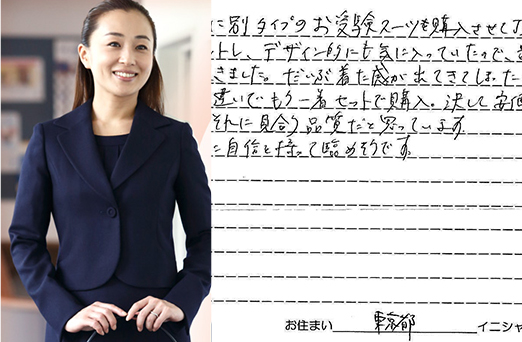 に別タイプのお受験スーツも購入させて
トし、デザイン的にも気に入っていたので、
きました。だいぶ着た感が出てきてしまった
違いでもう一着セットで購入。決して安価
それに見合う品質だと思っています
に自信を持って臨めそうです
お住まい 東京都 イニシャ